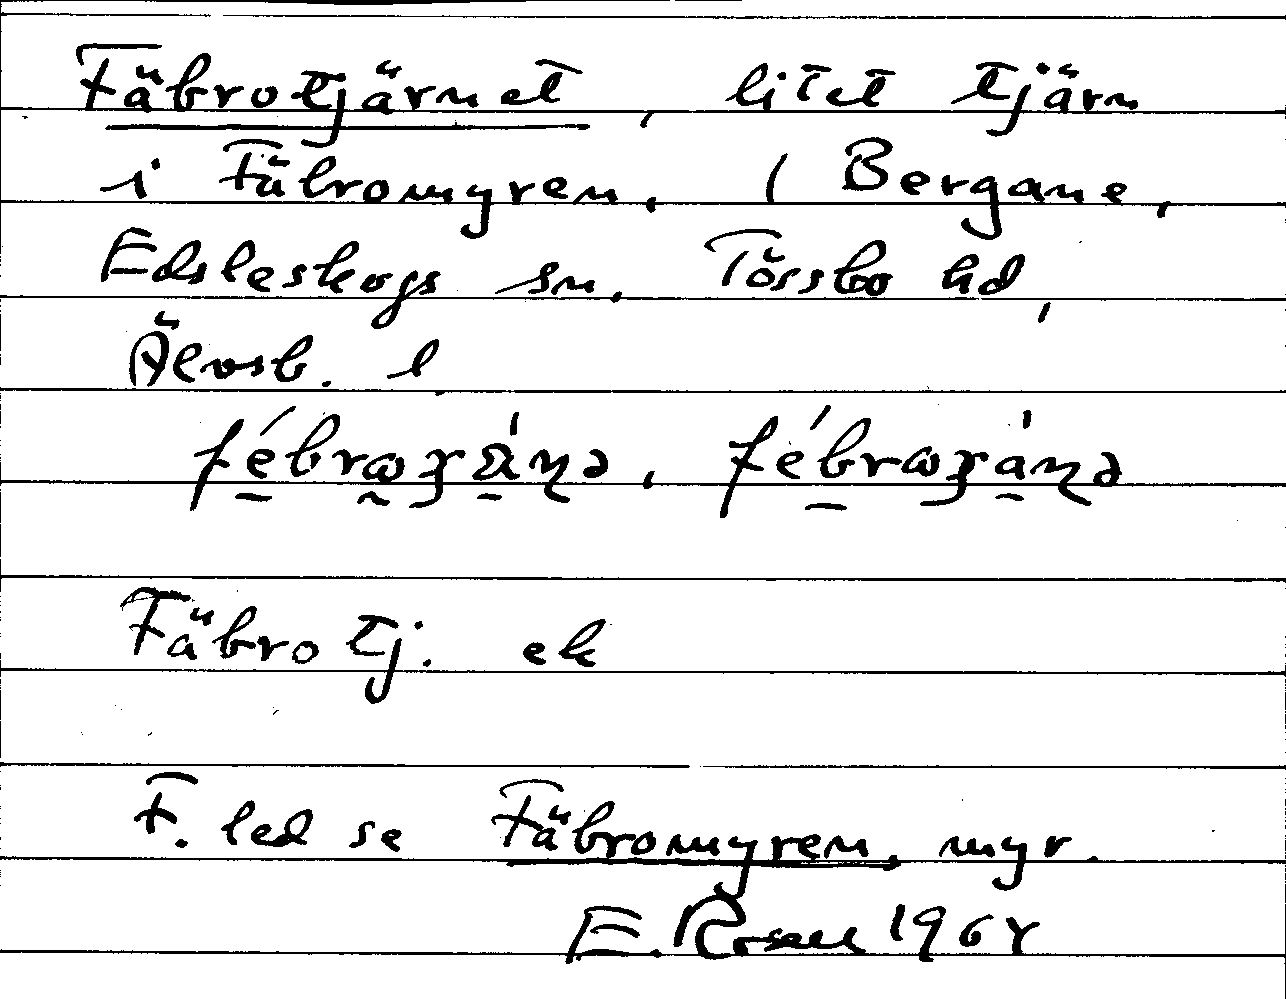 Fäbrotjärnet, litet tjärn
i Fäbromyren, / Bergane,
Edsleskogs sn. Tössbo hd,
Älvsb. l
Fäbrotj. ek
F. led se Fäbromyren, myr.
E. Rosell 1964